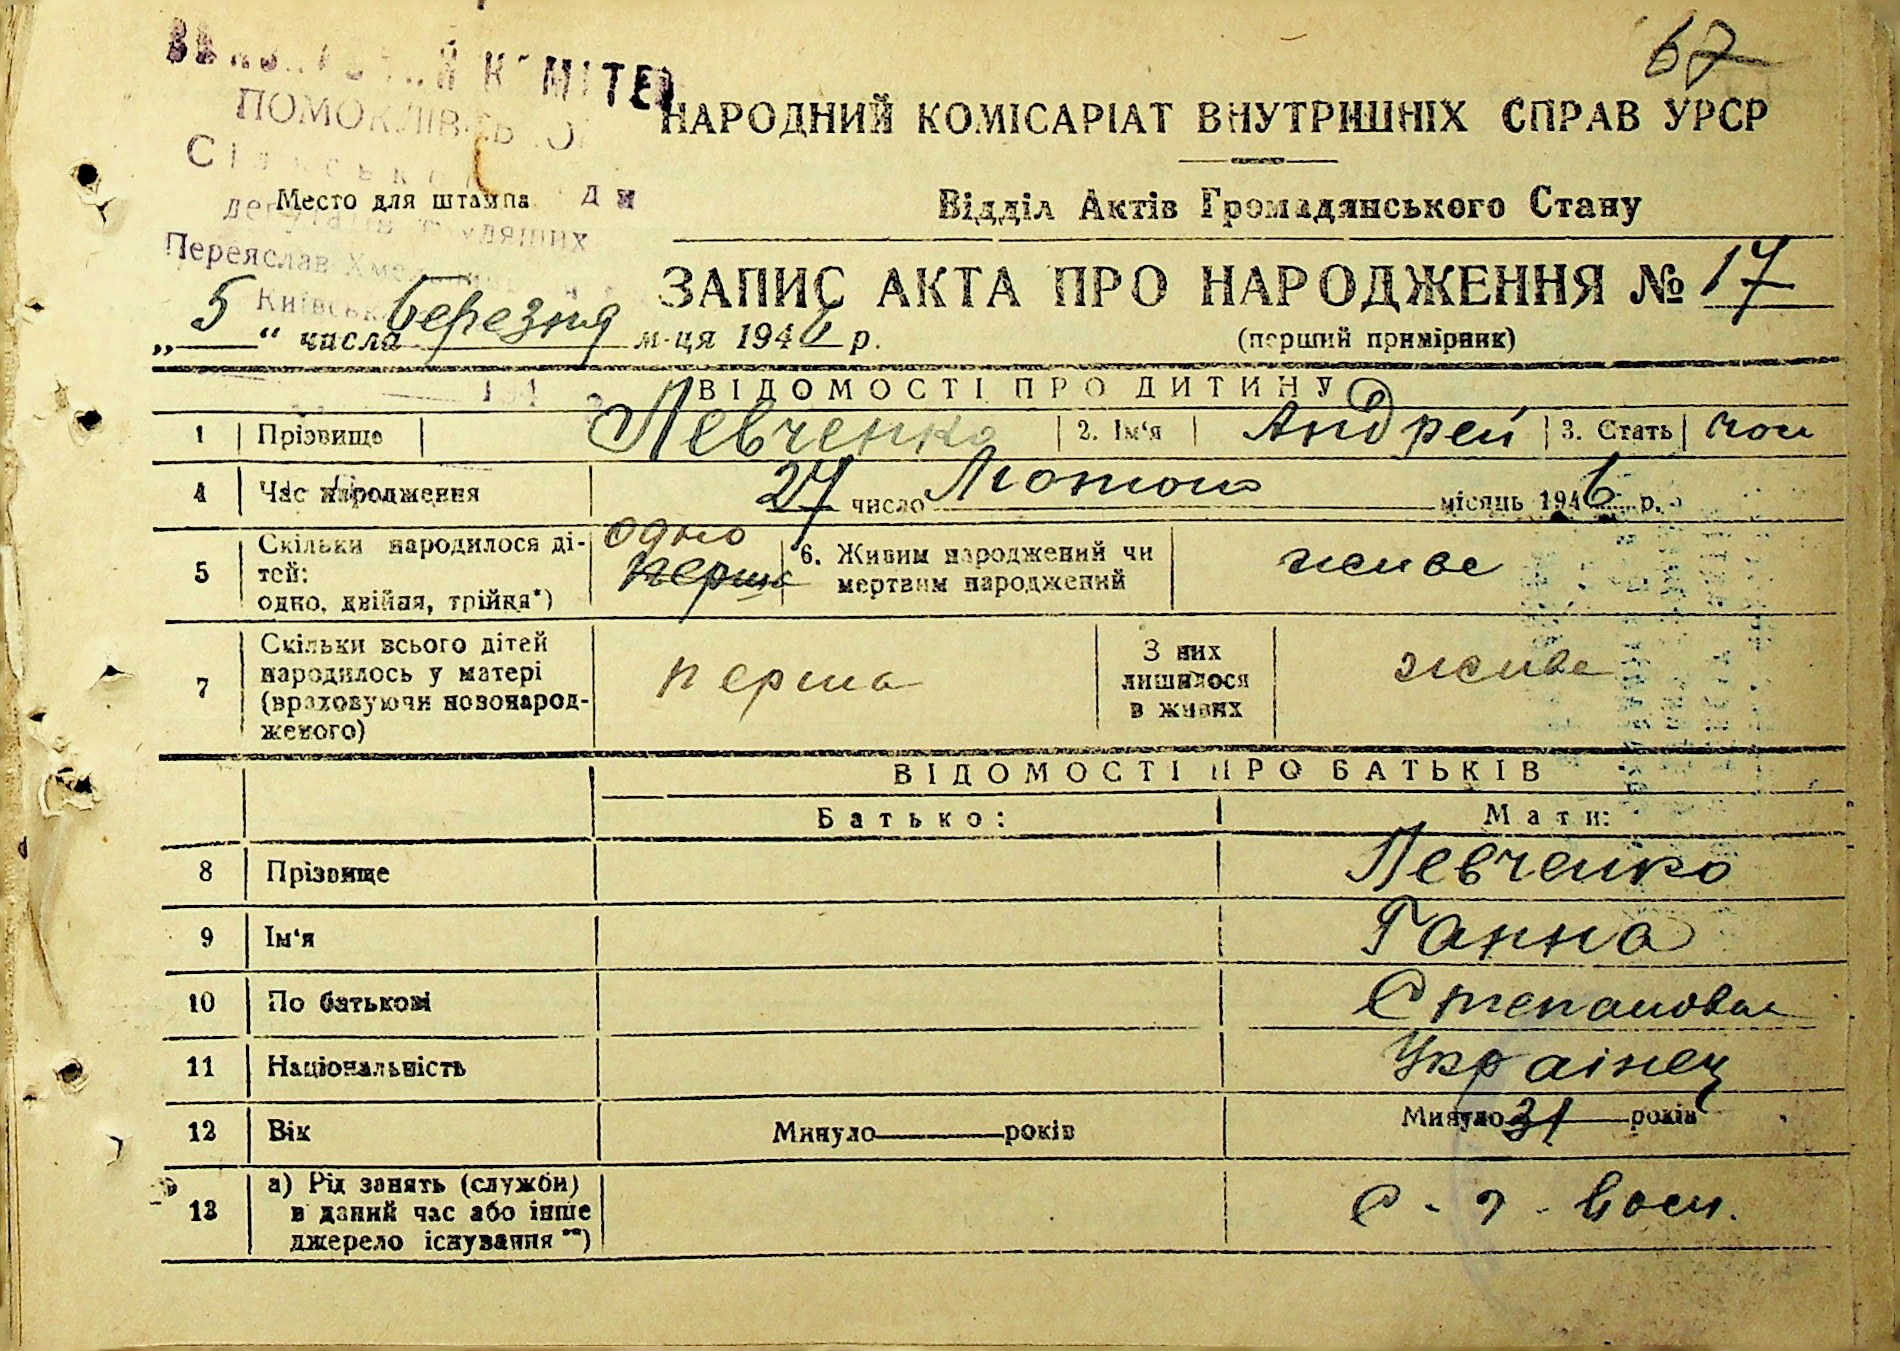 67
КОМІТЕТ
ПОМОКЛІВСЬКОЇ
НАРОДНИЙ КОМІСАРІАТ ВНУТРІШНІХ СПРАВ УРСР
Место для штампа
депутатів трудящих
Відділ Актів Громадянського Стану
Переяслав Хмельниц
Київськ
ЗАПИС АКТА ПРО НАРОДЖЕННЯ № 17
„5“ числа березня м-ця 1946 р.
(перший примірник)
ВІДОМОСТІ ПРО ДИТИНУ
1 Прізвище Левченко 2. Ім'я Андрей 3. Стать чол
4 Час народження 27 число Лютого місяць 1946 р.
5 Скільки народилося ді-
тей:
одно, двійня, трійня*)
одно
перша
6. Живим народжений чи
мертвим народжений
живе
7 Скільки всього дітей
народилось у матері
(враховуючи новонарод-
женого)
перша
З них
лишилося
в живих
живе
ВІДОМОСТІ ПРО БАТЬКІВ
Батько: Мати:
8 Прізвище Левченко
9 Ім'я Ганна
10 По батькові Степановна
11 Національність Українец
12 Вік Минуло років Минуло 31 років
13 а) Рід занять (служби)
в даний час або інше
джерело існування **)